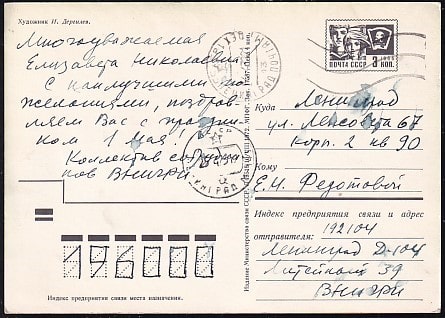 Художник И. Дергилев.
Многоуважаемая
Елизавета Николаевна
С наилучшими
пожеланиями, поздрав-
ляем Вас с праздни-
ком 1 Мая!
Коллектив сотрудни-
ков ВНИГРИ
ПОЧТА СССР
3 КОП.
Куда Ленинград
ул. Ленсовета 67
корп. 2 кв 90
Кому
Е.Н. Федотовой
Индекс предприятия связи и адрес
192104
отправителя:
Ленинград Д-104
Литейный 39
ВНИГРИ
196000
Индекс предприятия связи места назначения.
Издание Министерства связи СССР.